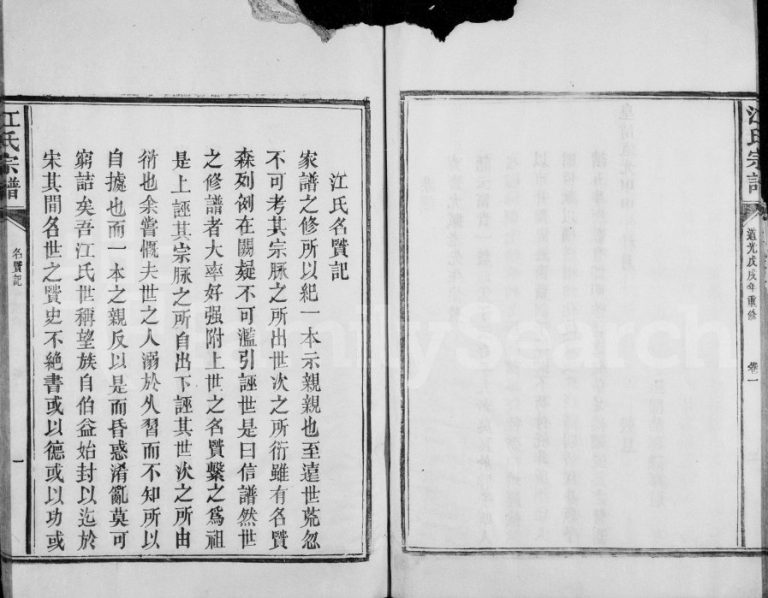 江氏宗譜
道光戊戌年重修
卷一
江氏名賢記
家譜之修所以紀一本示親親也至遠世荒忽
不可考其宗脉之所出世次之所衍雖有名賢
森列例在闕疑不可濫引誣世是曰信譜然世
之修譜者大率好强附上世之名賢繫之爲祖
是上誣其宗脉之所自出下誣其世次之所由
衍也余嘗慨夫世之人溺於久習而不知所以
自據也而一本之親反以是而昏惑淆亂莫可
窮詰矣吾江氏世稱望族自伯益始封以迄於
宋其間名世之賢史不絶書或以德或以功或
江氏宗譜
名賢記
一
FamilySearch